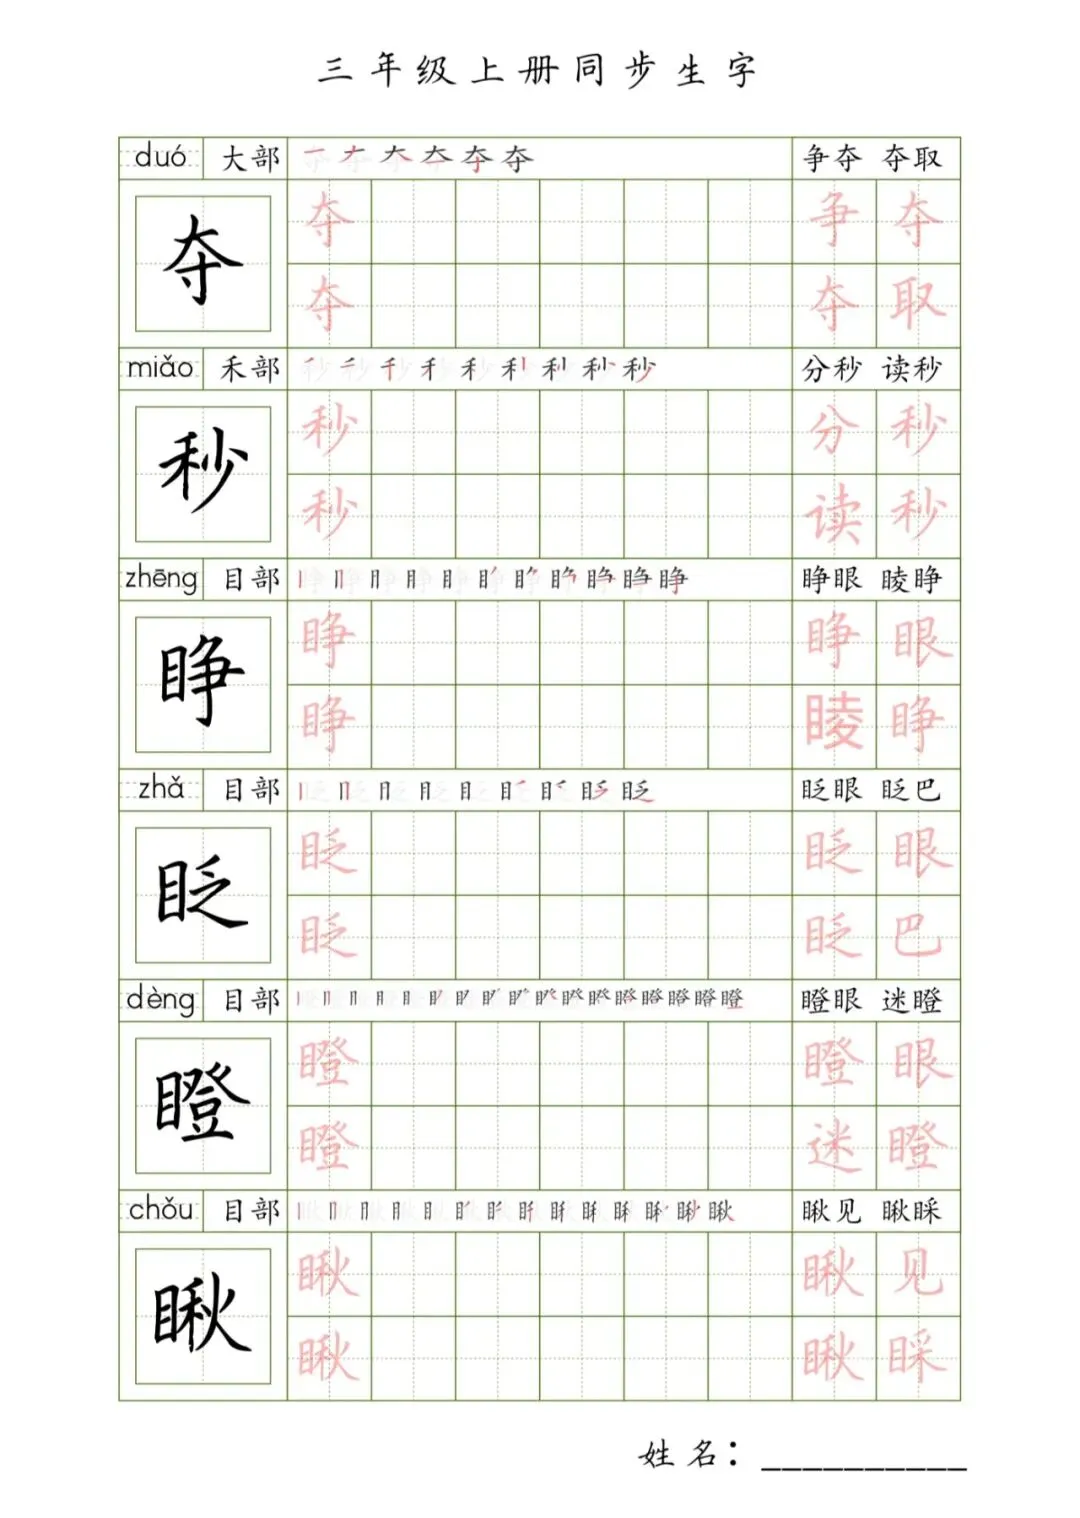 三年级上册同步生字
duó 大部 夺 争夺 夺取
夺 夺 争夺
夺 夺取
miǎo 禾部 秒 分秒 读秒
秒 秒 分秒
秒 读秒
zhēng 目部 睁 睁眼 睖睁
睁 睁 睁眼
睁 睖睁
zhǎ 目部 眨 眨眼 眨巴
眨 眨 眨眼
眨 眨巴
dèng 目部 瞪 瞪眼 迷瞪
瞪 瞪 瞪眼
瞪 迷瞪
chǒu 目部 瞅 瞅见 瞅睬
瞅 瞅 瞅见
瞅 瞅睬
姓名：__________